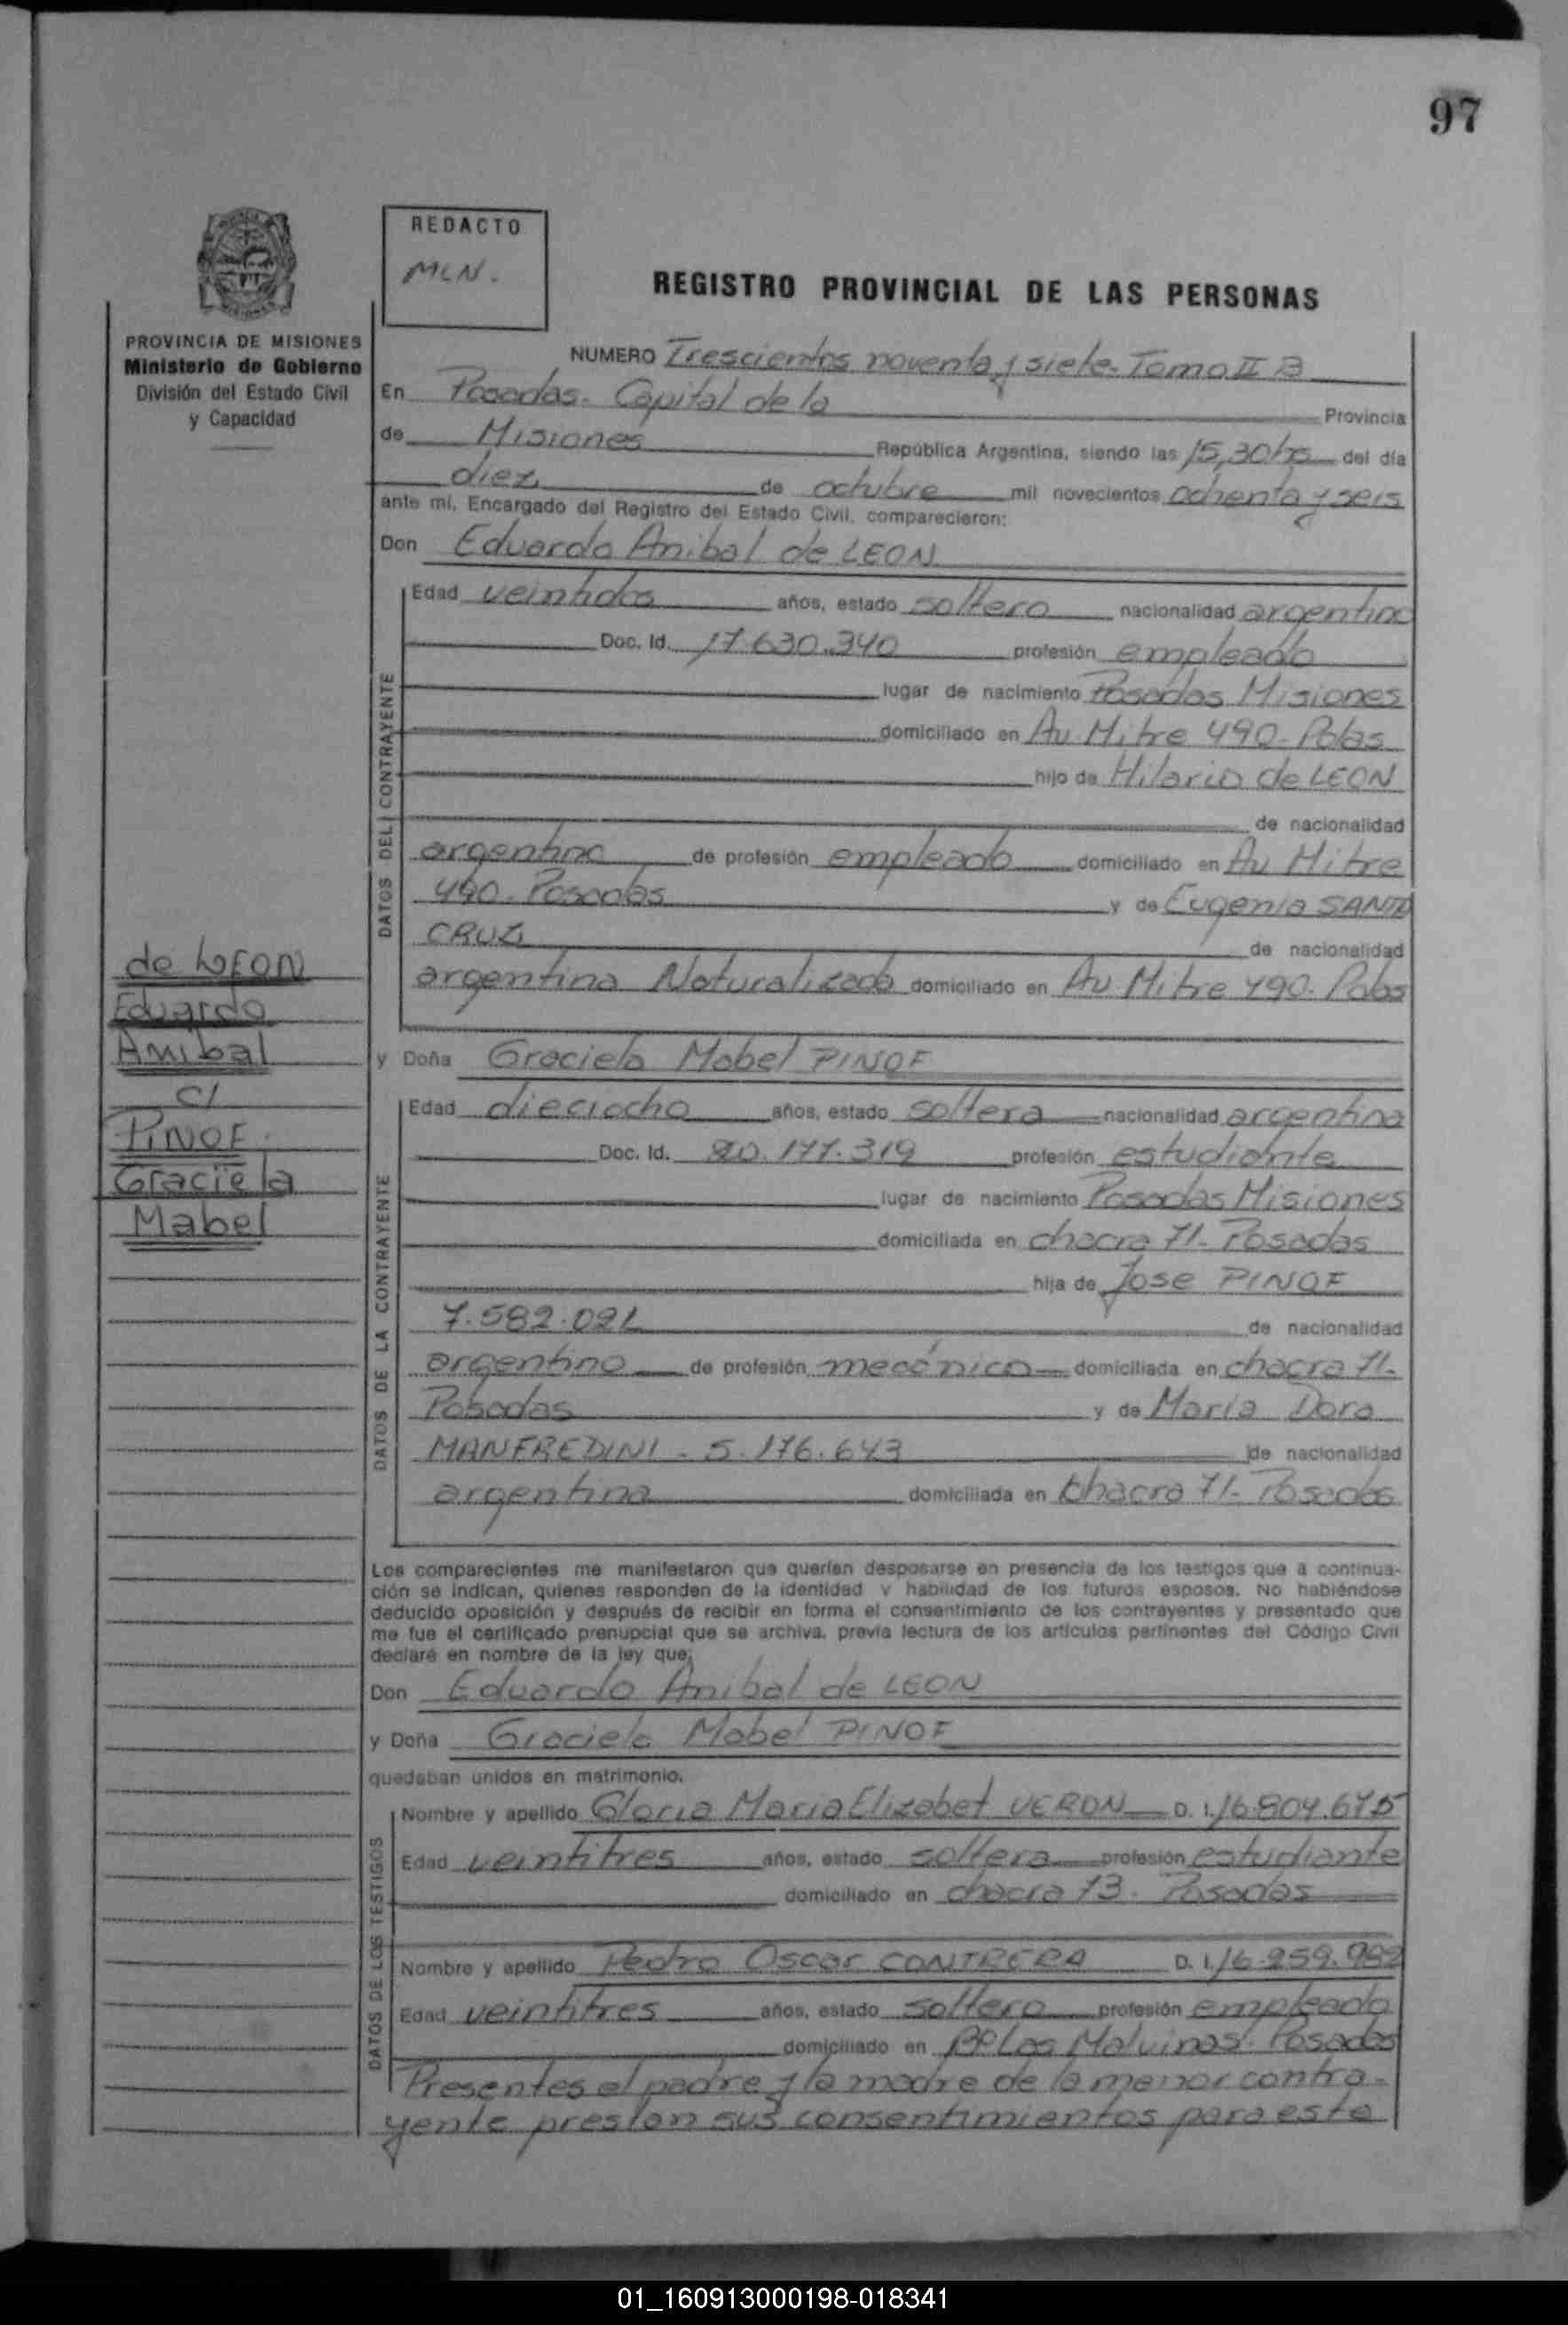 97
REDACTO
MLN.
REGISTRO PROVINCIAL DE LAS PERSONAS
PROVINCIA DE MISIONES
Ministerio de Gobierno
División del Estado Civil
y Capacidad
NUMERO Trescientos noventa y siete. Tomo II B
En Posadas. Capital de la Provincia
de Misiones República Argentina, siendo las 15,30 hs del día
diez de octubre mil novecientos ochenta y seis
ante mí, Encargado del Registro del Estado Civil, comparecieron:
Don Eduardo Anibal de LEON
DATOS DEL CONTRAYENTE
Edad veintidos años, estado soltero nacionalidad argentino
Doc. Id. 17.630.340 profesión empleado
lugar de nacimiento Posadas Misiones
domiciliado en Av. Mitre 490- Pdas
hijo de Hilario de LEON
de nacionalidad
argentino de profesión empleado domiciliado en Av Mitre
490. Posadas y de Eugenia SANTA
CRUZ de nacionalidad
argentina Naturalizada domiciliado en Av Mitre 490. Pdas
de LEON
Eduardo
Anibal
c/
PINOF.
Graciela
Mabel
y Doña Graciela Mabel PINOF
DATOS DE LA CONTRAYENTE
Edad dieciocho años, estado soltera nacionalidad argentina
Doc. Id. 20.177.319 profesión estudiante
lugar de nacimiento Posadas Misiones
domiciliada en chacra 71- Posadas
hija de Jose PINOF
7.582.021 de nacionalidad
argentino de profesión mecánico domiciliada en chacra 71-
Posadas y de María Dora
MANFREDINI - 5.176.643 de nacionalidad
argentina domiciliada en chacra 71- Posadas
Los comparecientes me manifestaron que querían desposarse en presencia de los testigos que a continua-
ción se indican, quienes responden de la identidad y habilidad de los futuros esposos. No habiéndose
deducido oposición y después de recibir en forma el consentimiento de los contrayentes y presentado que
me fue el certificado prenupcial que se archiva, previa lectura de los artículos pertinentes del Código Civil
declaré en nombre de la ley que;
Don Eduardo Anibal de LEON
y Doña Graciela Mabel PINOF
quedaban unidos en matrimonio.
DATOS DE LOS TESTIGOS
Nombre y apellido Gloria Maria Elizabet VERON D. I. 16.804.675
Edad veintitres años, estado soltera profesión estudiante
domiciliado en chacra 73. Posadas
Nombre y apellido Pedro Oscar CONTRERA D. I. 16.259.982
Edad veintitres años, estado soltero profesión empleado
domiciliado en Bº Las Malvinas. Posadas
Presentes el padre y la madre de la menor contra-
yente prestan sus consentimientos para este
01_160913000198-018341